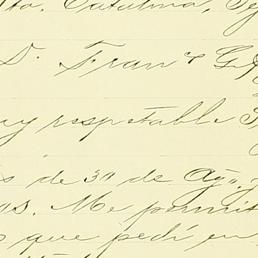 Sta. Catalina, Te
D. Franco G
uy respetable
s de 30 de Ag
os. Me permit
s que pedí en